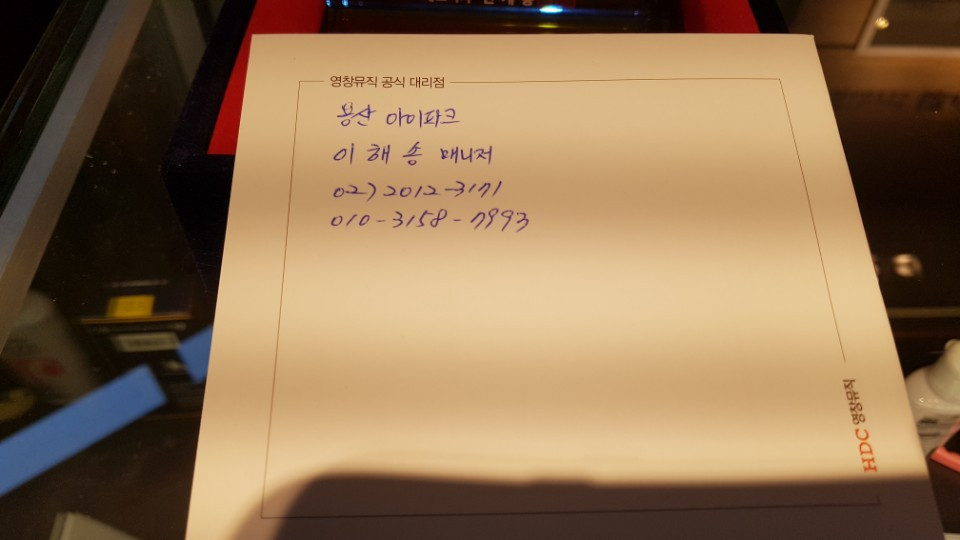 영창뮤직 공식 대리점
용산 아이파크
이해송 매니저
02) 2012-3171
010-3158-7993
HDC 영창뮤직